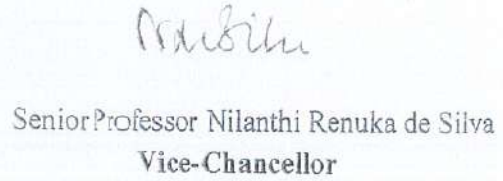 Senior Professor Nilanthi Renuka de Silva
Vice-Chancellor